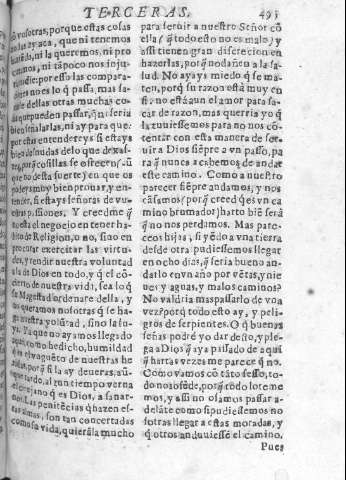 TERCERAS.
493
cõ vosotras, porque estas cosas
no las ay aca, que ni tenemos
ni la queremos, ni pro
curamos, ni tãpoco nos inju
nadie: por esso las compara
ciones no es lo q̃ passa, mas sa
canse dellas otras muchas co
sas que pueden passar, q̃ ni seria
bien señalarlas, ni ay para que:
por estas entendereys si estays
bien desnudas de lo que dexas
tes, porq̃ cosillas se ofrecen (aũ
q̃ no desta suerte) en que os
podeys muy bien prouar, y en
tender, si estays señoras de vue
stras passiones. Y creedme q̃
no esta el negocio en tener ha
bito de Religion, o no, sino en
procurar exercitar las virtu
des, y rendir nuestra voluntad
a la de Dios en todo, y q̃ el cõ
cierto de nuestra vida, sea lo q̃
su Magestad ordenare della, y
no queramos nosotras q̃ se ha
ga nuestra volũtad, sino la su
ya. Ya que no ayamos llegado
aqui, como he dicho, humildad
q̃ es el vnguẽto de nuestras he
ridas, porq̃ si la ay deueras, aũ
que tarde, algun tiempo verna
el cirujano q̃ es Dios, a sanar
nos. Las penitẽcias q̃ hazen es
tas almas, son tan concertadas
como su vida, quierẽla mucho
para seruir a nuestro Señor cõ
ella (q̃ todo esto no es malo) y
assi tienen gran discrecion en
hazerlas, porq̃ no dañen a la sa-
lud. No ayays miedo q̃ se ma-
ten, porq̃ su razon està muy en
si, no està aun el amor para sa-
car de razon, mas querria yo q̃
la tuuiessemos para no nos cõ-
tentar con esta manera de ser-
uir a Dios siẽpre a vn passo, pa
ra q̃ nunca acabemos de andar
este camino. Como a nuestro
parecer siẽpre andamos, y nos
cãsamos (porq̃ creed q̃ es vn ca
mino brumador) harto biẽ serà
q̃ no nos perdamos. Mas pare-
ceos hijas, si yẽdo a vna tierra
desde otra pudiessemos llegar
en ocho dias, q̃ seria bueno an-
darlo en vn año por vẽtas, y nie
ues y aguas, y malos caminos?
No valdria mas passarlo de vna
vez? porq̃ todo esto ay, y peli-
gros de serpientes. O q̃ buenas
señas podrè yo dar desto, y ple-
ga a Dios q̃ aya passado de aqui
q̃ hartas vezes me parece q̃ no.
Como vamos cõ tãto seso, to-
do nos ofẽde, porq̃ todo lo teme
mos, y assi no osamos passar a-
delãte como si pudiessemos no
sotras llegar a estas moradas, y
q̃ otros anduuiessẽ el camino.
Pues